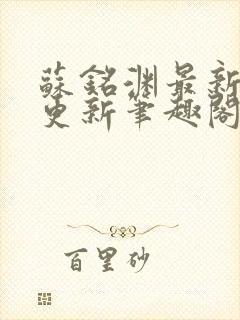 蘇銘淵最新
更新筆趣閣
百里砂